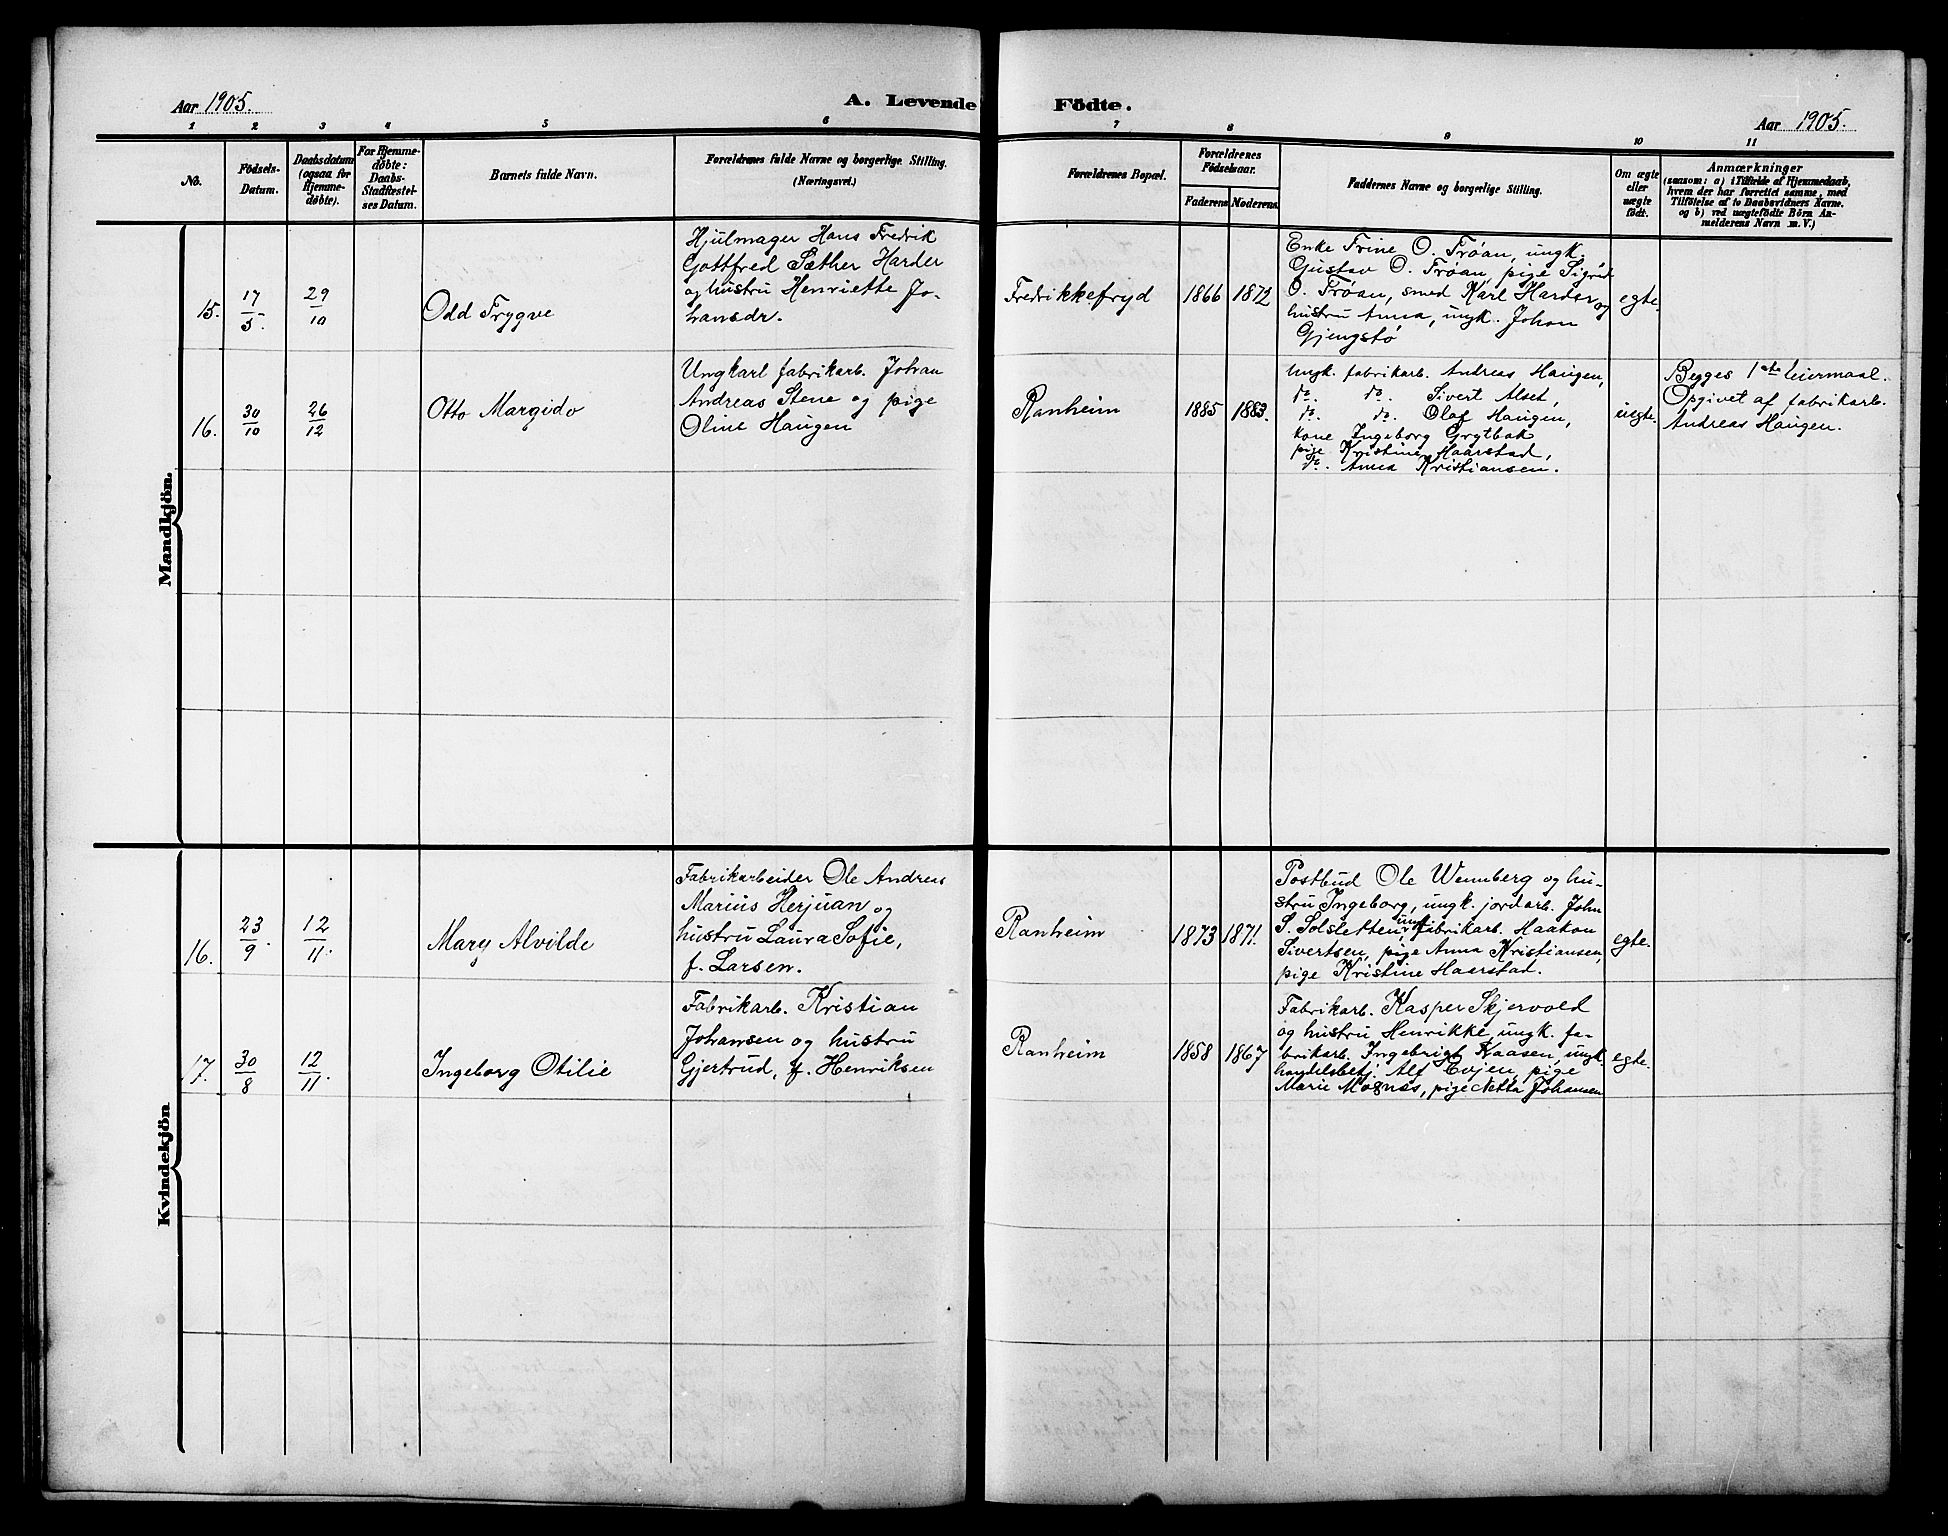 Aar 1905.
A. Levende Födte.
Aar 1905.
1 2 3 4 5 6 7 8 9 10 11
No.
Födsels-
Datum.
Daabsdatum
(ogsaa for
Hjemme-
døbte).
For Hjemme-
døbte:
Daabs-
Stadfæstel-
ses Datum.
Barnets fulde Navn.
Forældrenes fulde Navne og borgerlige Stilling.
(Næringsvei.)
Forældrenes Bopæl.
Forældrenes
Födselsaar.
Faderens Moderens.
Faddernes Navne og borgerlige Stilling.
Om ægte
eller
uægte
födt.
Anmærkninger
(saasom: a) i Tilfælde af Hjemmedaab,
hvem der har forrettet samme, med
Tilföielse af to Daabsvidners Navne.
og b) ved uægtefödte Börn An-
melderens Navn m. V.)
Mandkjön.
15.
17/5.
29/10
Odd Trygve
Hjulmager Hans Fredrik
Gottfred Sæther Harder
og hustru Henriette Jo-
hansdr.
Fredrikkefryd
1866
1872
Enke Trine O. Trøan, ungk.
Gustav O. Trøan, pige Sigrid
O. Trøan, smed Karl Harder og
hustru Anna, ungk. Johan
Gjengstø
egte.
16.
30/10
26/12
Otto Margido
Ungkarl fabrikarb. Johan
Andreas Stene og pige
Oline Haugen
Ranheim
1885
1883.
Ungk. fabrikarb. Andreas Haugen,
do. do. Sivert Alset,
do. do. Olaf Haugen,
kone Ingeborg Grytbak
pige Kristine Haarstad,
do. Anna Kristiansen.
uegte.
Begges 1ste leiermaal.
Opgivet af fabrikarb.
Andreas Haugen.
Kvindekjön
16.
23/9
12/11.
Mary Alvilde
Fabrikarbeider Ole Andreas
Marius Herjuan og
hustru Laura Sofie,
f. Larsen.
Ranheim
1873
1871.
Postbud Ole Wennberg og hu-
stru Ingeborg, ungk. jordarb. John
S. Solsletten, ungk. fabrikarb. Haakon
Sivertsen, pige Anna Kristiansen,
pige Kristine Haarstad.
egte.
17.
30/8
12/11.
Ingeborg Otilie
Fabrikarb. Kristian
Johansen og hustru
Gjertrud, f. Henriksen
Ranheim
1858
1867
Fabrikarb. Kasper Skjervold
og hustru Henrikke, ungk. fa-
brikarb. Ingebrigt Kaasen, ungk.
handelsbetj. Alf Evjen, pige
Marie Moxnes, pige Netta Johansen
egte.